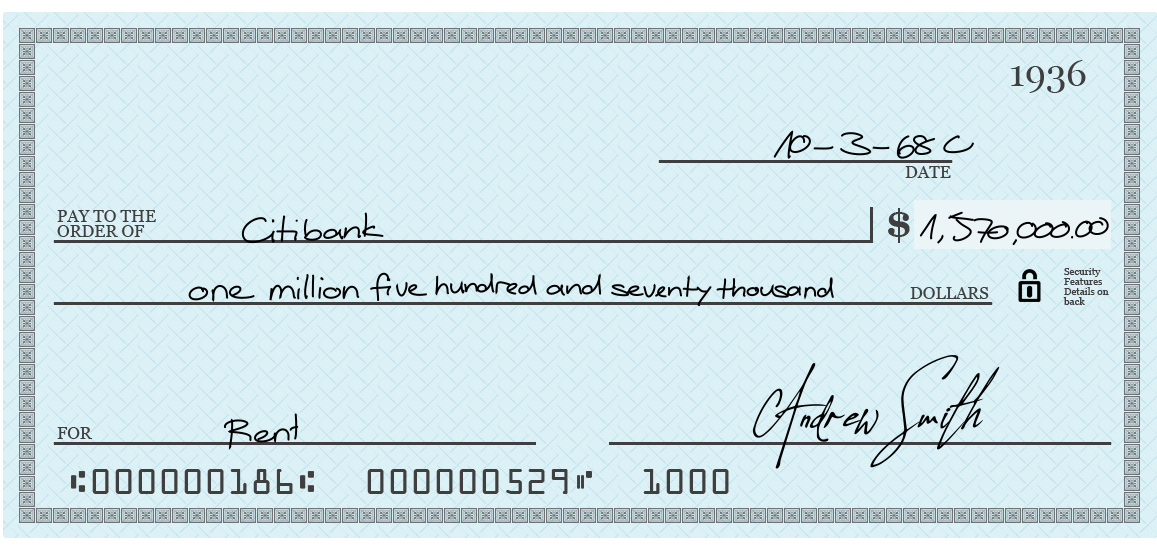 1936
10-3-68 C
DATE
PAY TO THE
ORDER OF Citibank $ 1,570,000.00
one million five hundred and seventy thousand DOLLARS
Security
Features
Details on
back
FOR Rent Andrew Smith
⑆000000186⑆ 000000529⑈ 1000